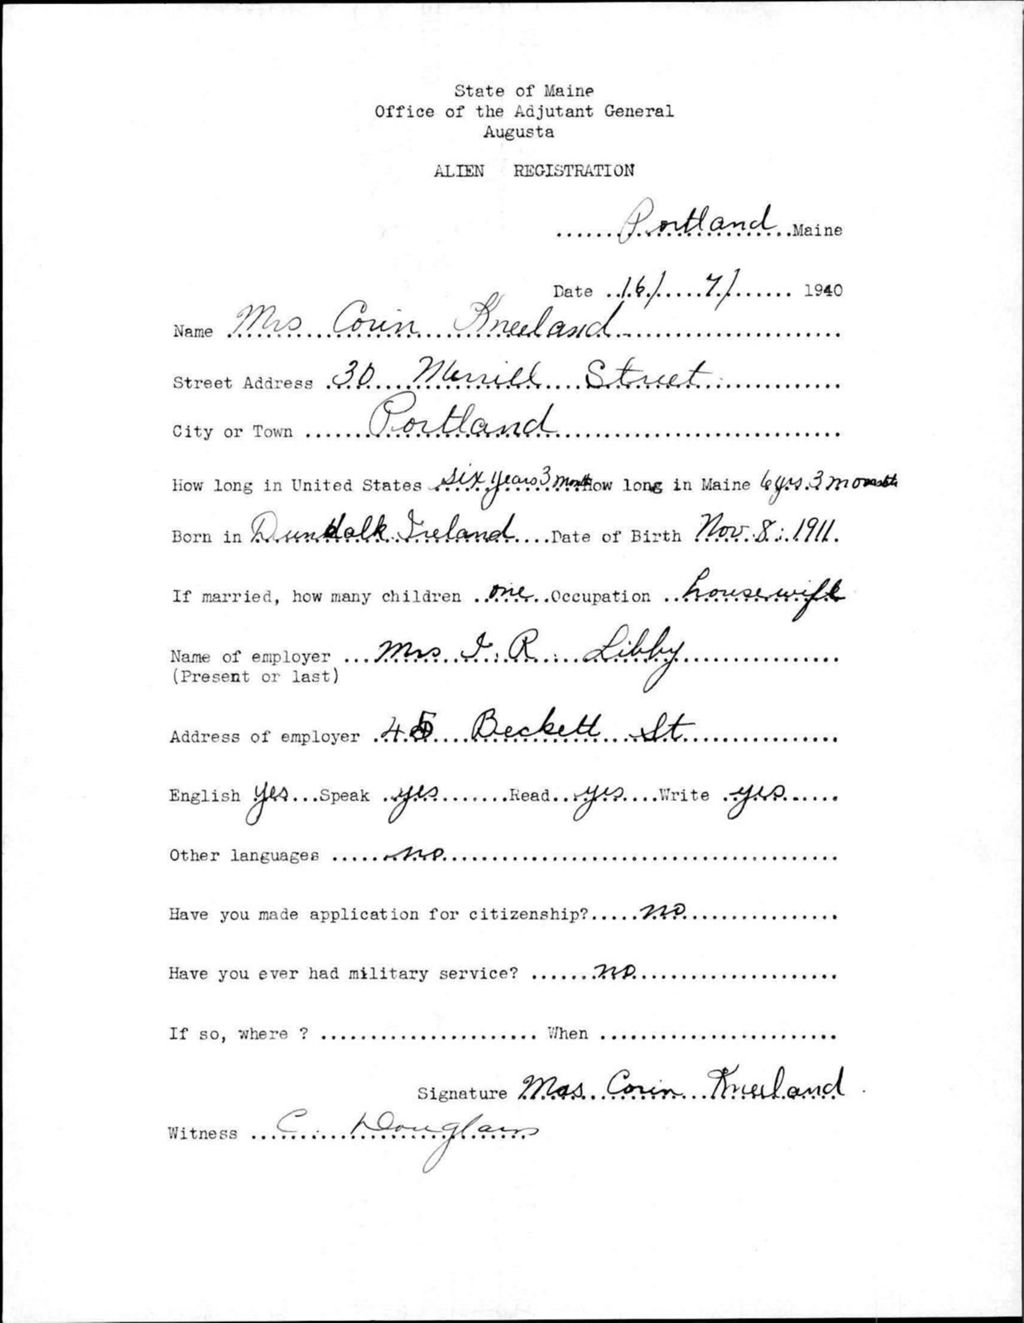 State of Maine
Office of the Adjutant General
Augusta
ALIEN REGISTRATION
Portland Maine
Date 16/ 7/ 1940
Name Mrs Corin Kneeland
Street Address 30 Merrill Street
City or Town Portland
How long in United States six years 3 months How long in Maine 6 yrs. 3 months
Born in Dundalk Ireland Date of Birth Nov. 8. 1911.
If married, how many children one Occupation housewife
Name of employer Mrs I. R. Libby
(Present or last)
Address of employer 45 Beckett St
English yes Speak yes Read yes Write yes
Other languages no
Have you made application for citizenship? no
Have you ever had military service? no
If so, where ? When
Signature Mrs. Corin Kneeland
Witness C. Douglass